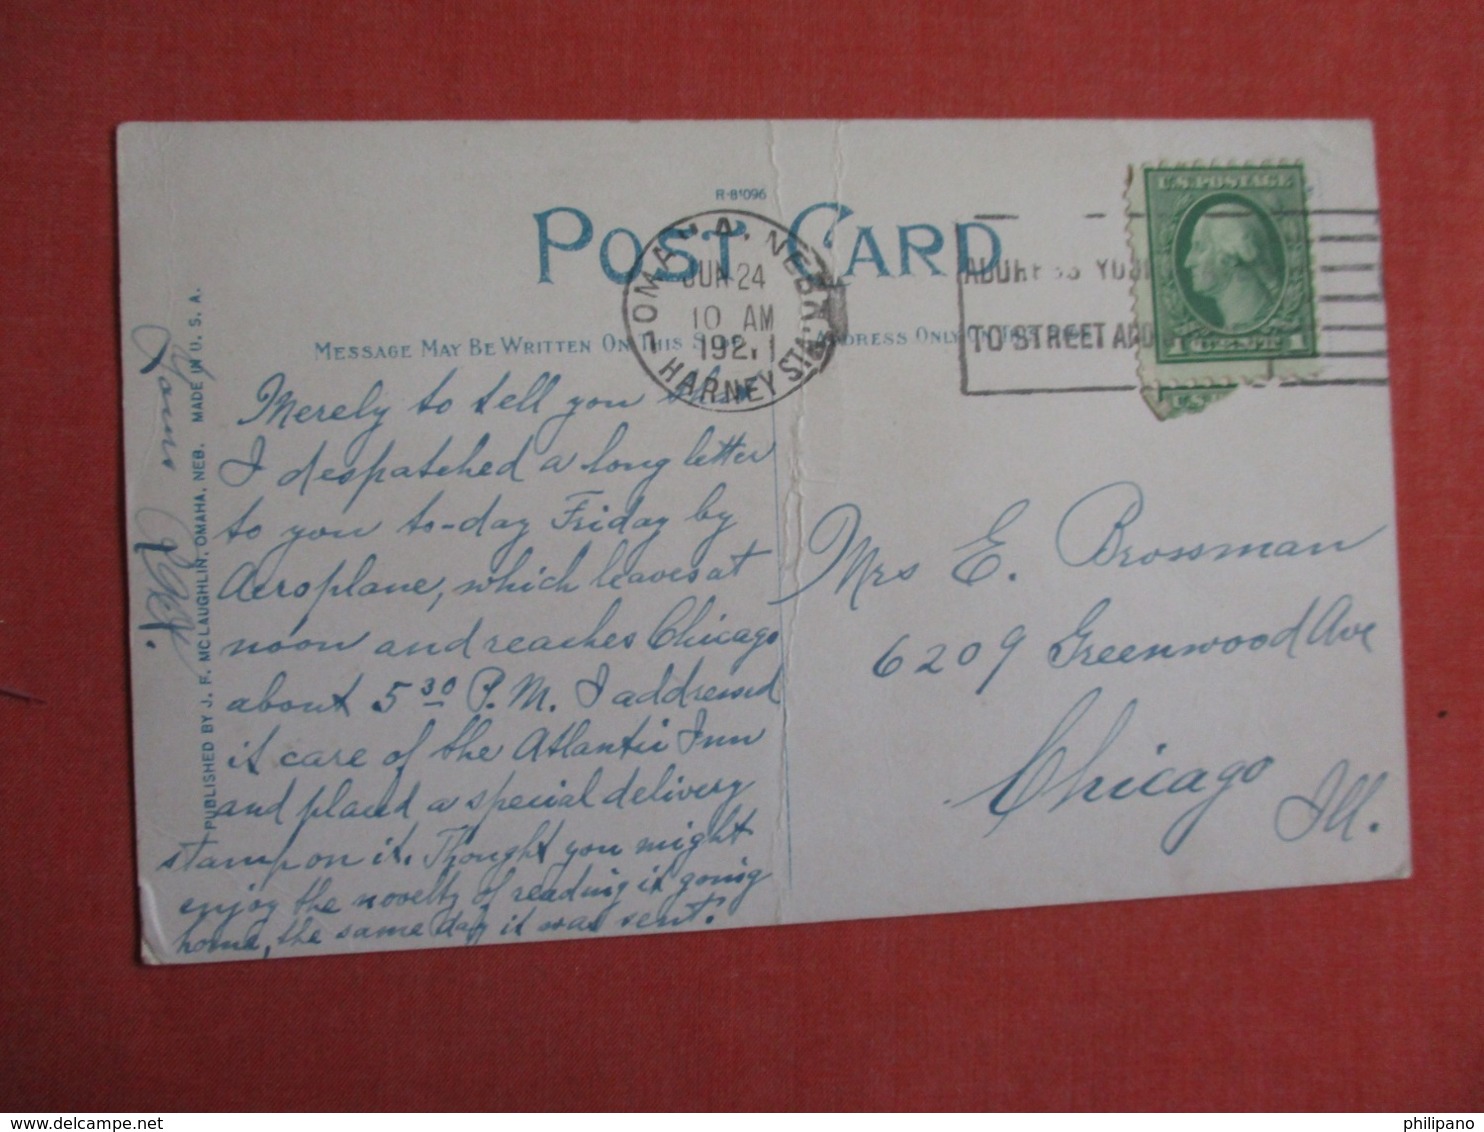 R-81096
POST CARD
OMAHA, NEBR.
JUN 24
10 AM
1921
HARNEY STA.
ADDRESS YOUR
TO STREET AND
U.S. POSTAGE
1 1
U.S.
MESSAGE MAY BE WRITTEN ON THIS SIDE
ADDRESS ONLY ON THIS
Merely to tell you that
I despatched a long letter
to you to-day Friday by
Aeroplane, which leaves at
noon and reaches Chicago
about 5 30 P.M. I addressed
it care of the Atlantic Inn
and placed a special delivery
stamp on it. Thought you might
enjoy the novelty of reading it going
home, the same day it was sent.
Yours
PUBLISHED BY J. F. MCLAUGHLIN, OMAHA, NEB. MADE IN U. S. A.
Mrs E. Brossman
6209 Greenwood Ave
Chicago
Ill.
delcampe.net
philipano